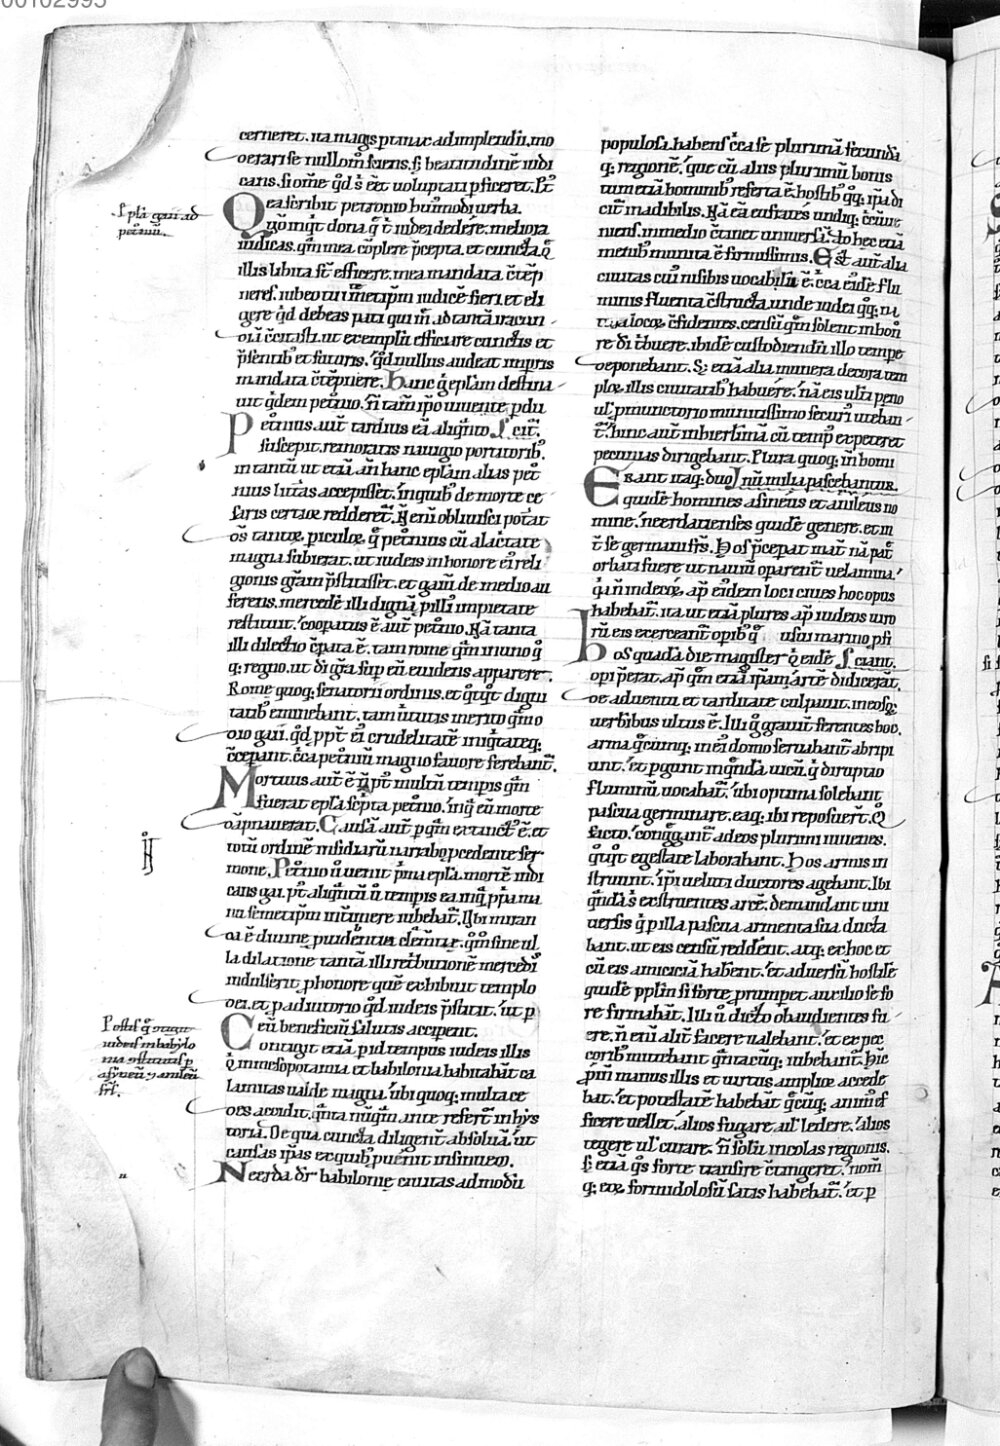 00102995
cerneret. ita magis pronior ad implendū. mo
derari se nullom̄ sciens. si beatitudinē iudi
caris. si om̄e qd s; eēt uoluptati pficeret. Et
ea scribit petronio huiꝰmodi uerba.
Quō inqt dona q̄ t̄ iudei dedēre. meliora
iudicas. qm̄ mea cōplere p̄cepta. et cuncta q̄
illis libita st̄ efficere. mea mandata c̄tēp
neres. iubeo tu
gere qd debeas pati qui
ut exemplū efficiare cunctis et
p̄sentibꝰ et futuris. qd nullus audeat impris
mandata c̄tēpnere. Hanc q̄ eplam destina
uit qdem petnio. n̄ tam̄ ipo uiuente pdu
Petnius aut̄ tardius eā aliqn̄to S cit̄.
suscepit. remoratis nauigio portitoribꝰ.
in tantū ut etiā an̄ hanc eplam alias pet
nius litt̄as accepisset. in quibꝰ de morte ce
saris certior redderet̄. N̄ enī obliuisci pot̄at
ds̄ tantoꝝ piculoꝝ q̄ petnius cū alacritate
magna subierat. ut iudeis in honore ei reli
gionis gr̄am p̄stitisset. et gaiū de medio au
ferens. mercedē illi dignā p illi impietate
restituit. cooperatus ē aut̄ petnio. Nā tanta
illi dilectio cparata ē. tam rome qm̄ in uno q̄
q; regno. ut di gr̄a sup eū euidens appareret.
Rome quoq; senatorii ordinis. et qtqt digni
tatibꝰ eminebant. tam uirtutis merito qm̄ o
dio gai. qd ppt̄ ei crudelitatē iniqtateq;
c̄ceperant. c̄ca petniū magno fauore ferebant̄.
Mortuus aut̄ ē n̄ p̄t multū tempis qm̄
fuerat epla sc̄pta petnio. in q̄ eū morte
dāpnauerat. Causā aut̄ p qm̄ extinctꝰ ē. et
totū ordinē insidiarū narrabo pcedente ser
mone. Petnio ū uenit pma epla. mortē indi
cans gai. p̄t aliqn̄tū ū tempis ea in q̄ ppa ma
nu semetipm̄ int̄imere iubebat̄. Ubi miran
da ē diuine prouidentia clem̄tie. qm̄ sine ul
la dilatione tantā illi retributionē mercedi
indulserit. p honore quē exhibuit templo
dei. et p adiutorio qd iudeis p̄stitit. ut p
ceū beneficiū salutis acciperet.
Contigit etiā. p id tempus iudeis illis
q̄ in mesopotamia et babilonia habitabāt ca
lamitas ualde magna. ubi quoq; multa ce
des accidit. qn̄ta nūqm̄ ante refert̄ in hys
toria. De qua cuncta diligent̄ absoluā. ut
causas ipas ex quibꝰ puenit insinuem.
Neerda dr̄ babilonie ciuitas admodū
S epla gaii ad
petniū.
Post hꝰ q̄ contigit
iudeis in babylo
nia constitutis p
asineū ⁊ anileū
frs̄.
populosa. habens c̄ca se plurimā fecundā
q; regionē. que cū aliis plurimū bonis
tum etiā hominibꝰ referta ē. hostibꝰ qq; ipa di
cit̄ inadibilis. Nā eā eufrates undiq; c̄cuue
niens. in medio c̄tinet uniuersā. Ad hec etiā
menibꝰ munita ē firmissimis. Est aut̄ alia
ciuitas cui nisibis uocabulū ē. c̄ca eūde flu
minis fluenta c̄structa. unde iudei qq; na
tura locoꝝ c̄fidentes. censū qm̄ solent in bon̄
re di t̄buere. ibidē custodiendū illo tempe
deponebant. S; etiā alia munera decora tem
ploꝝ illis ciuitatibꝰ habuēre. nā eis ulti peno
ul' pmunctorio munitissimo securi uteban
t̄. hinc aut̄ in hierlimā cū tempꝰ expeteret
pecunias dirigebant. Plura quoq; in̄ homi
Erant itaq; duo In̄ū milia pascebantur.
quidē homines asineus et anileus no
mine. neerdatenses quidē genere. et in
t̄ se germani frs̄. Hos p̄ceperat mat̄ nā pat̄
orbati fuere ut nauiū operarent̄ uelamina.
q̄ a n̄ indecōꝝ. ap̄ eidem loci ciues hoc opus
habebat̄. ita ut etiā plures ap̄ iudeos uiro
rū eis exerceant̄ opibꝰ q̄ usui marino psi
hos quadā die magister q̄ eisdē S ciant.
opi p̄erat. ap̄ qm̄ etiā ipam artē didicerāt.
de aduentu et tarditate culpauit. in eosq;
uerbibus ultus ē. Illi q̄ grauit̄ ferentes hoc.
arma q̄cumq; in ei domo seruabant̄ abripi
unt. et pgunt in qn̄dā uicū. q̄ diruptio
fluminū uocabat̄. ubi optima solebant
pascua germinare. eaq; ibi reposuer̄t. Q̄
facto. congregant̄ ad eos plurimi iuuenes.
qtqt egestate laborabant. Hos armis in
struunt. ipi ueluti ductores agebant. Ibi
qn̄dā s; exstruentes arcē. demandant uni
uersis q̄ p illa pascua armenta sua ducta
bant. ut eis censū reddent. atq; ex hoc et
cū eis amiciciā habent. et aduersū hostile
quidē pplm̄ si forte prumpet auxilio se fo
re firmabāt. Illi ū dicto obaudientes fu
ere. n̄ enī alit̄ facere ualebant. et ex pec
coribꝰ mittebant qn̄tacūq; iubebant̄. Hic
p̄m̄ manus illis et uirtus amplior accede
bat. et potestatē habebāt q̄cūq; animꝰ ef
ficere uellet. alios fugare. ul' ledere. alios
tegere ul' curare. n̄ solū incolas regionis.
s; etiā q̄s forte transire c̄tingeret. nom̄
q; eoꝝ formidolosū satis habebat̄. et p